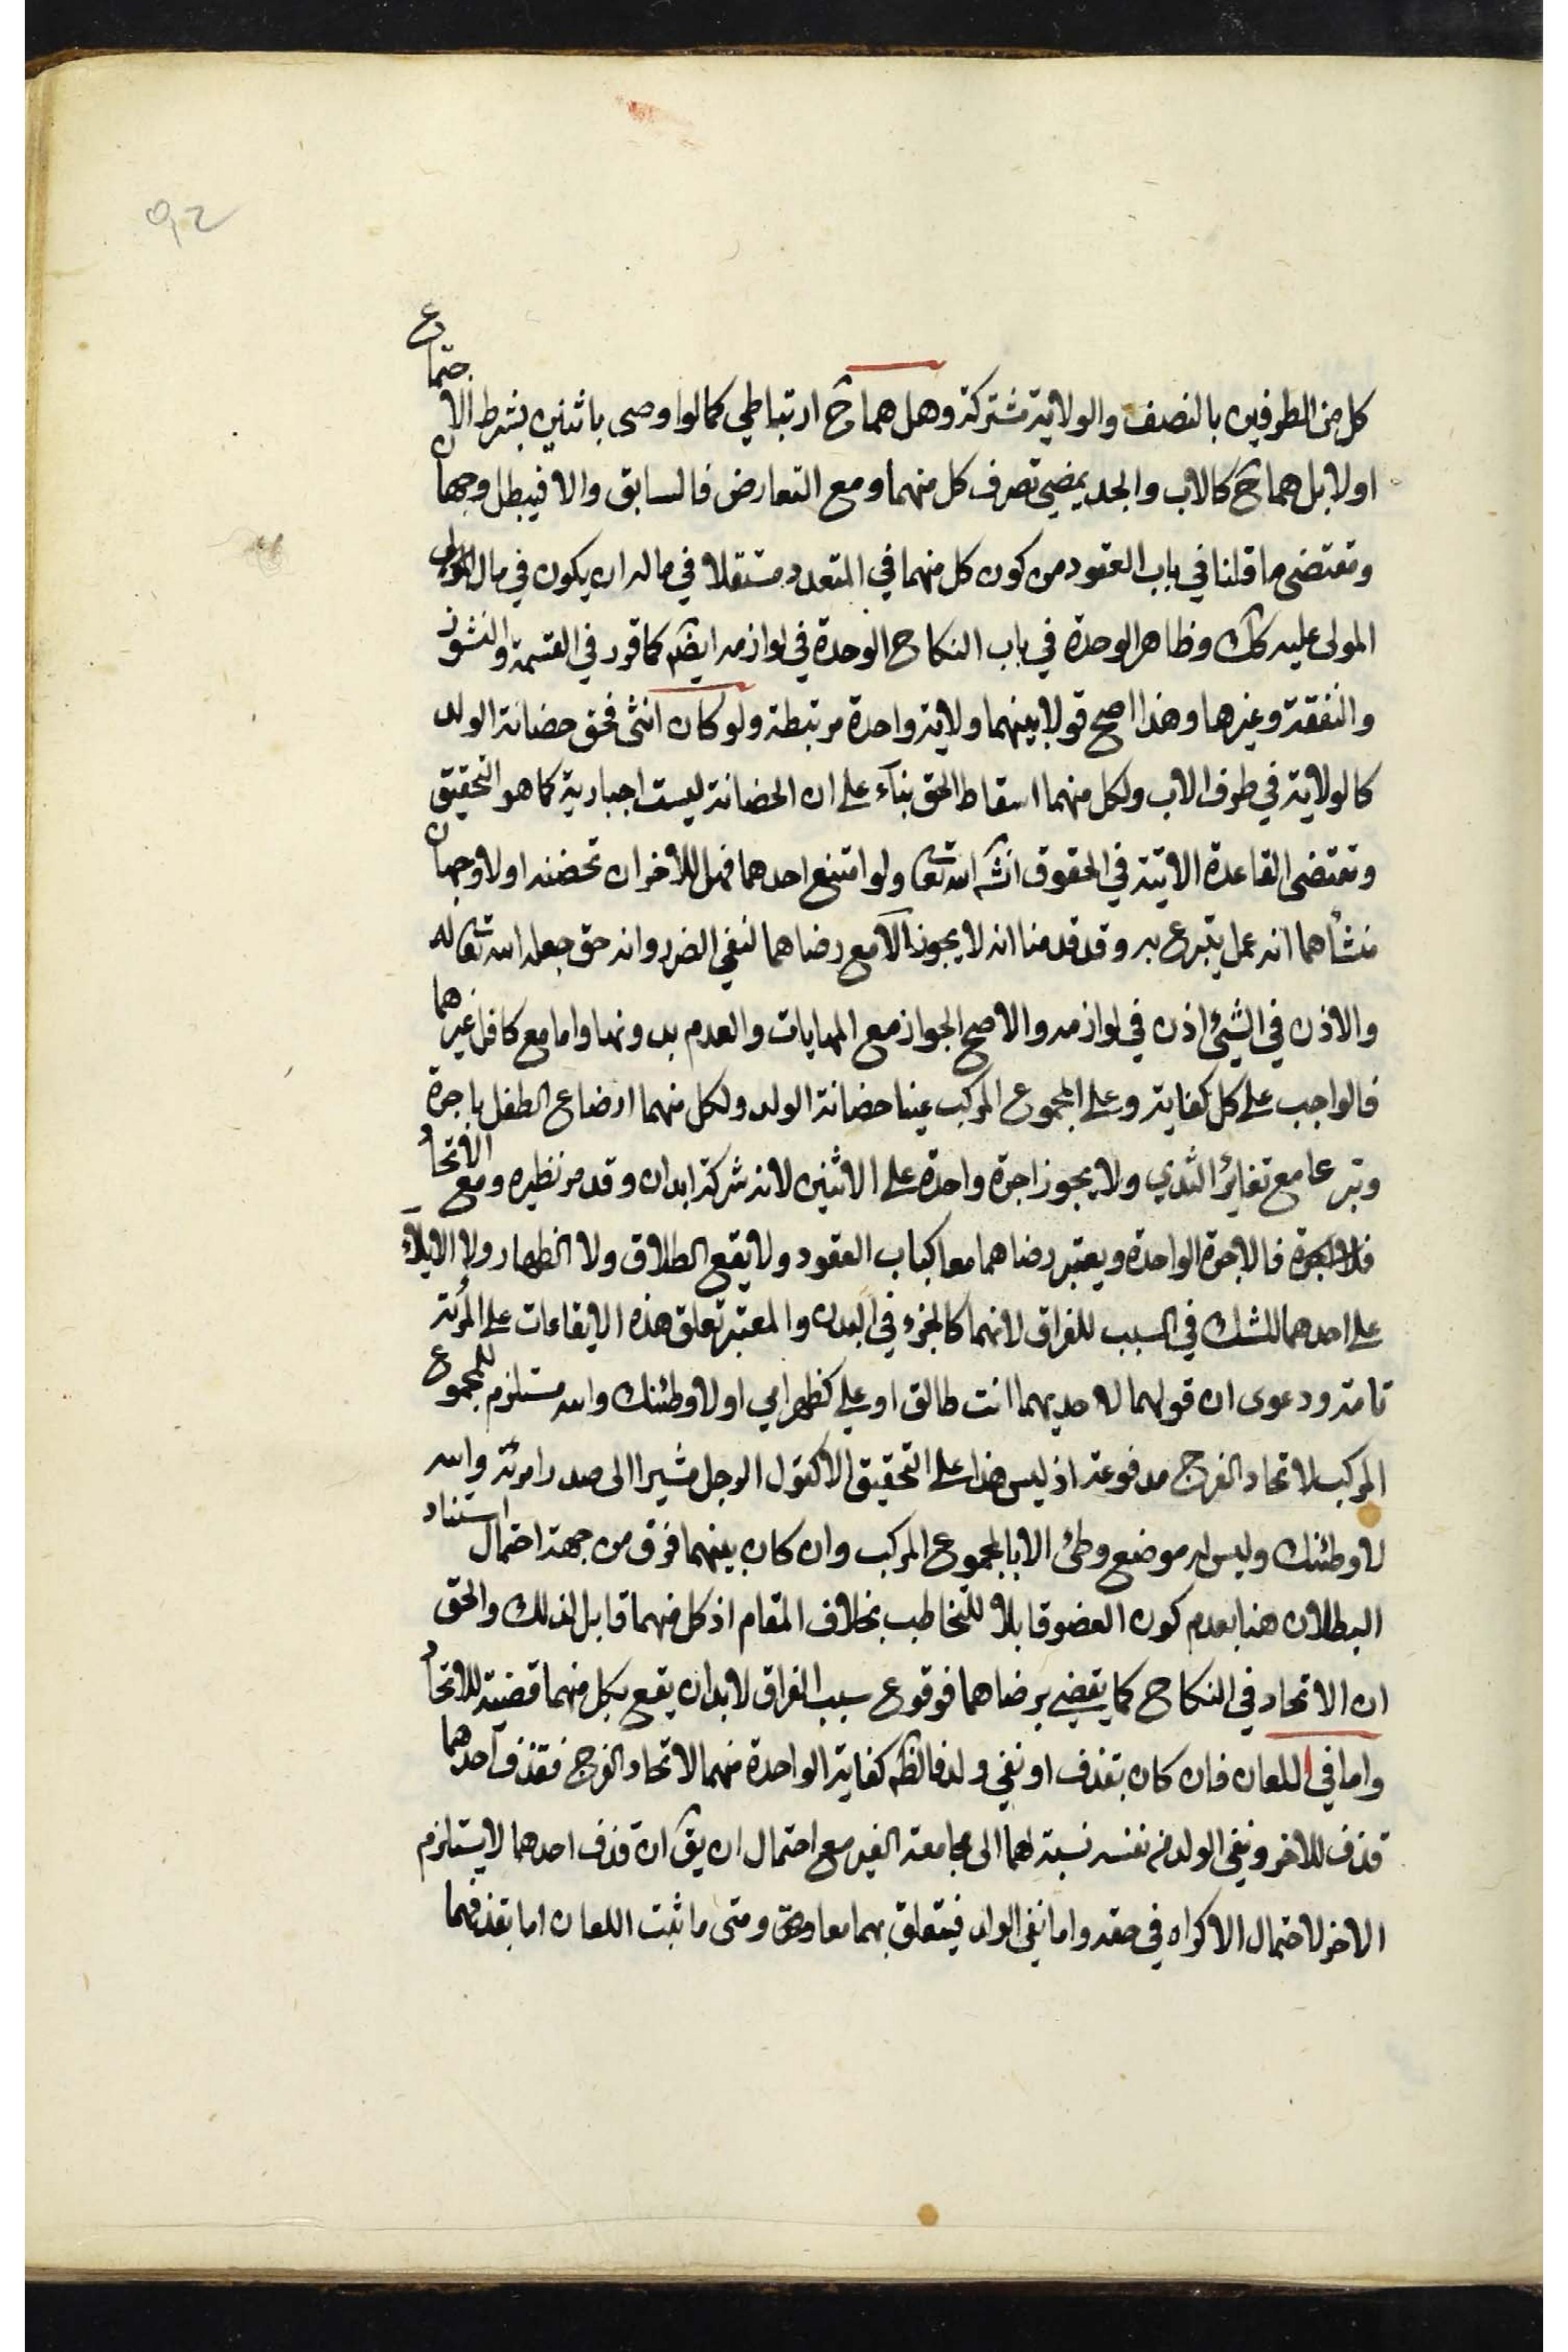 ٩٢
كل من الطرفين بالنصف والولاية مشتركة وهل هما ح ارتباطي كما لو اوصى باثنين بشرط الاجتماع
اولا بل هما ح كالاب والجد يمضي تصرف كل منهما ومع التعارض فالسابق والا فيبطل وجهان
ومقتضى ما قلنا في باب العقود من كون كل منهما في المتعدد مستقلا في ماله ان يكون في مال
المولى عليه كك وظاهر الوحدة في باب النكاح الوحدة في لوازمه ايضم كما قرر في القسمة والنشوز
والنفقة وغيرها وهذا اصح قولا بينهما ولاية واحدة مرتبطة ولو كان انثى فحق حضانة الولد
كالولاية في طرف الاب ولكل منهما اسقاط الحق بناء على ان الحضانة ليست اجبارية كما هو التحقيق
ومقتضى القاعدة الاتية في الحقوق انشه الله تعا ولو امتنع احدهما فهل للاخر ان تحضنه اولا وجهان
منشأهما انه عمل يتبرع به وقد قدمنا انه لا يجوز الا مع رضاهما لنفي الضرر وانه حق جعله الله تعا له
والاذن في الشيئ اذن في لوازمه والاصح الجواز مع المهايات والعدم بدونها واما مع كافل غيرهما
فالواجب على كل كفاية وعلى المجموع المركب عينا حضانة الولد ولكل منهما ارضاع الطفل باجرة
وتبرعا مع تغائر الثدي ولا يجوز اجرة واحدة على الاثنين لانه شركة ابدان وقد مر نظيره ومع الاتحاد
فالاجرة الواحدة ويعتبر رضاهما معا كباب العقود ولا يقع الطلاق ولا الظهار ولا الايلاء
على احدهما للشك في السبب للفراق لانهما كالجزء في البدن والمعتبر تعلق هذه الايقاعات على المرئة
تامة ودعوى ان قولهما لاحديهما انت طالق او علي كظهر امي او لا وطئتك والله مستلزم للمجموع
المركب لاتحاد الفرج مدفوعة اذ ليس هذا على التحقيق الا كقول الرجل مشيرا الى صدر امرئة والله
لا وطئتك وليس له موضع وطئ الا بالمجموع المركب وان كان بينهما فرق من جهة احتمال استناد
البطلان هنا بعدم كون العضو قابلا للتخاطب بخلاف المقام اذ كل منهما قابل لذلك والحق
ان الاتحاد في النكاح كما يقضي برضاهما فوقوع سبب الفراق لابد ان يقع بكل منهما قضية للاتحاد
واما في اللعان فان كان بقذف او نفي ولد فالظم كفاية الواحدة منهما لاتحاد الفرج فقذف احدهما
قذف للاخر ونفي الولد من نفسه نسبة لهما الى مجامعة الغير مع احتمال ان يق ان قذف احدهما لا يستلزم
الاخر لاحتمال الاكراه في حقه واما نفي الولد فيتعلق بهما معا ومتى ما ثبت اللعان اما بقذفهما